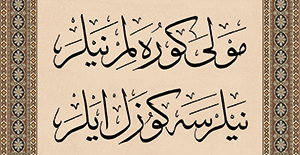 مولی كوره لم نیلر
نیلرسه كوزل ایلر